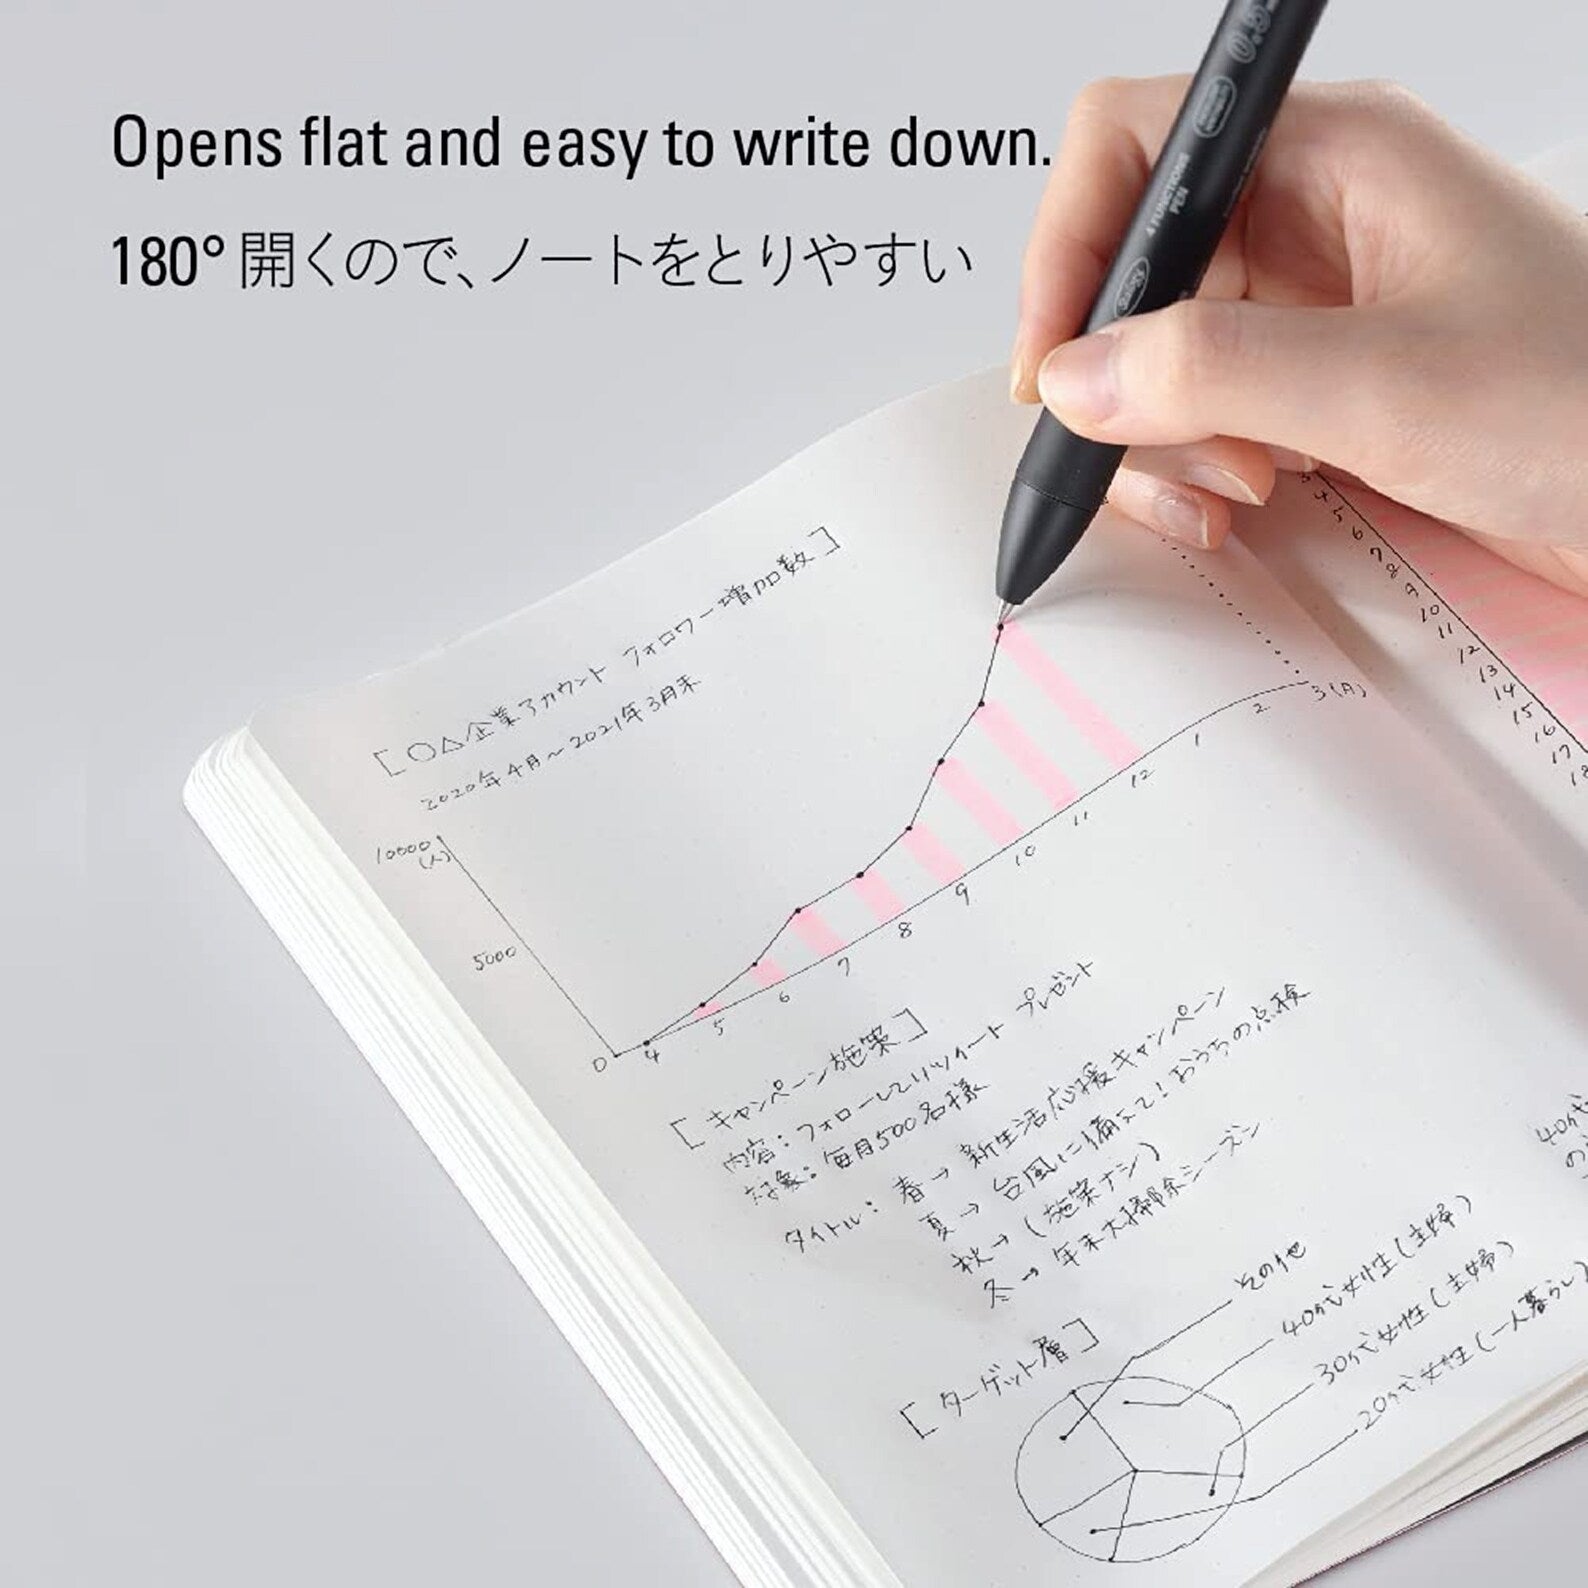 Opens flat and easy to write down.
180°開くので、ノートをとりやすい
0.5
4 FUNCTIONS
PEN
[○△企業アカウント フォロワー増加数]
2020年4月～2021年3月末
10000
(人)
5000
0
4 5 6 7 8 9 10 11 12 1 2 3(月)
[キャンペーン施策]
内容：フォローしてリツイート プレゼント
対象：毎月500名様
タイトル：春→新生活応援キャンペーン
夏→台風に備えて！おうちの点検
秋→(施策ナシ)
冬→年末大掃除シーズン
[ターゲット層]
その他
40代女性(主婦)
30代女性(主婦)
20代女性(一人暮らし)
3
4
5
6
7
8
9
10
11
12
13
14
15
16
17
18
40代
の